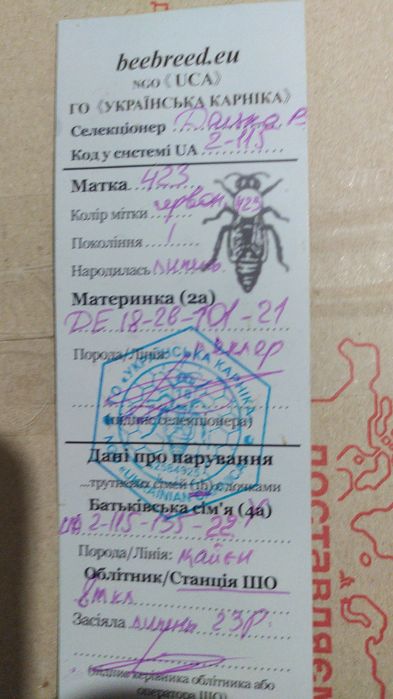 beebreed.eu
NGO《UCA》
ГО《УКРАЇНСЬКА КАРНІКА》
Селекціонер
Код у системі UA 2-115
Матка 423
423
Колір мітки червон
Покоління 1
Народилась липень
Материнка (2а)
DE 18-28-101-21
Порода/Лінія: Склар
ГО «УКРАЇНСЬКА КАРНІКА»
(підпис селекціонера)
«UKRAINIAN
Дані про парування
...трутневих сімей (1b) с дочками
Батьківська сім'я (4а)
UA 2-115-135-22
Порода/Лінія: майєн
Облітник/Станція ШО
Засіяла липень 23р.
(підпис керівника облітника або
оператора ШО)
ПОСТАВЛЯЄ